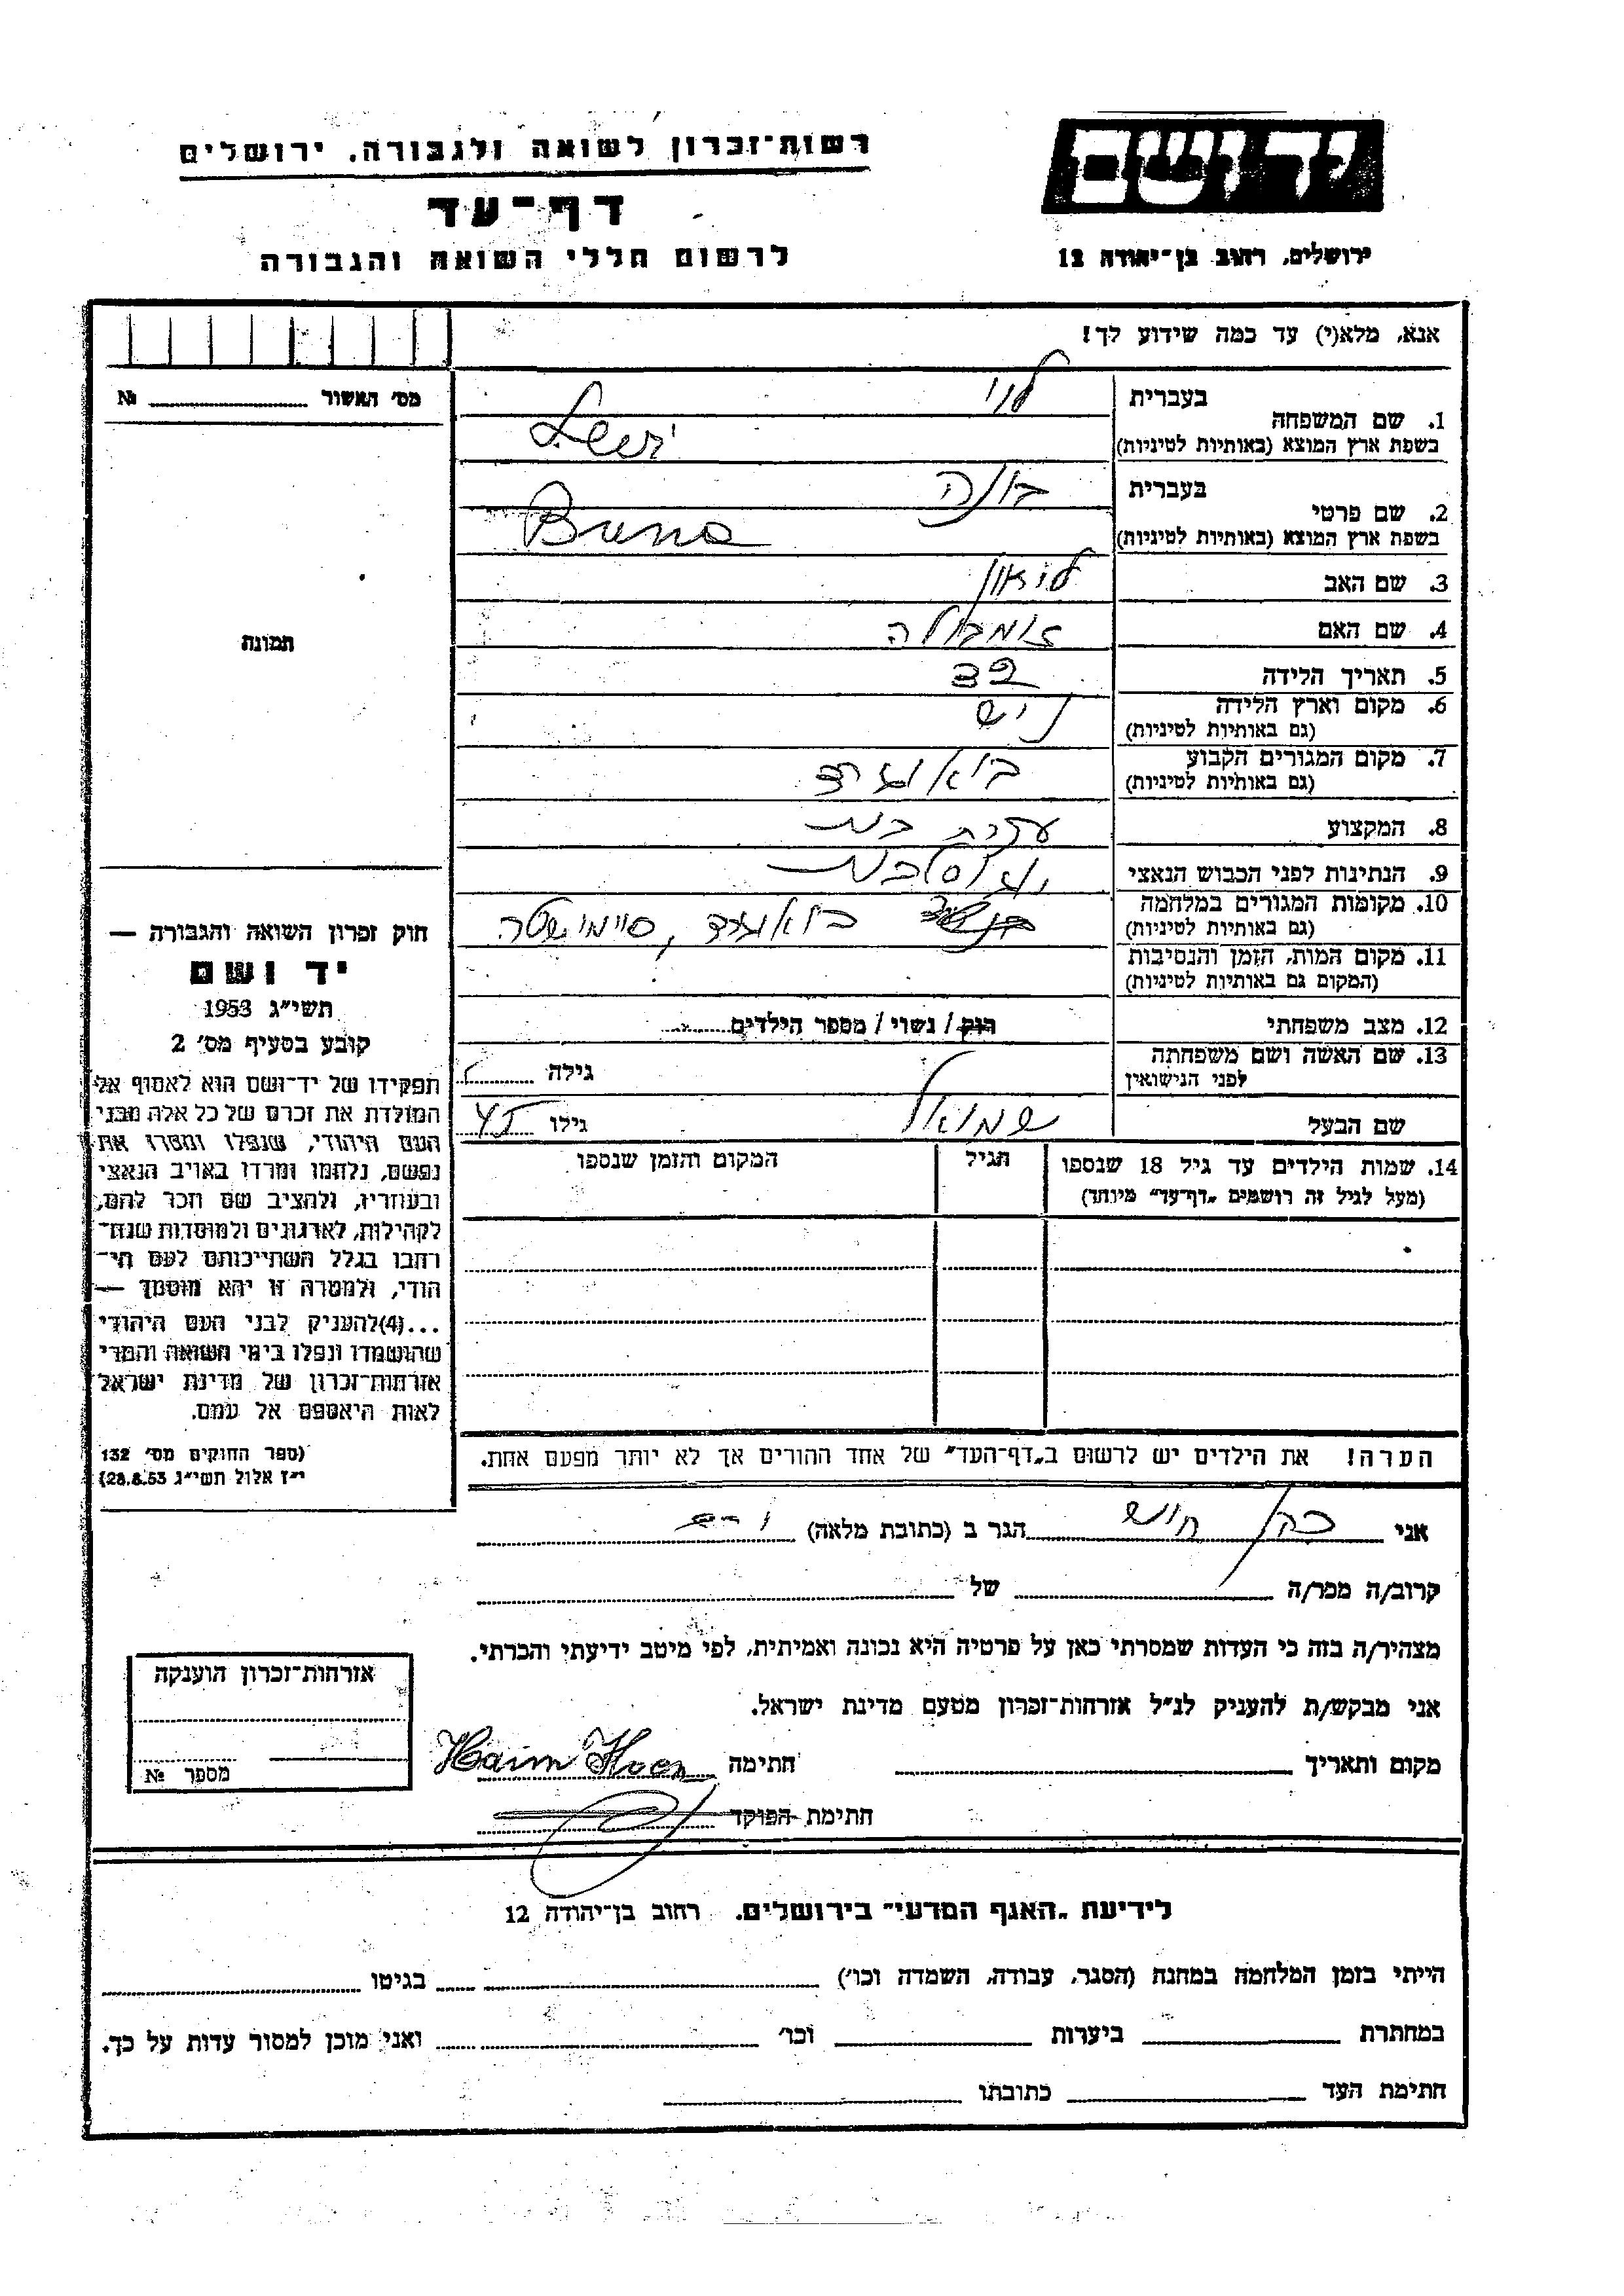 רשות־זכרון לשואה ולגבורה, ירושלים
דף־עד
לרשום חללי השואה והגבורה
יד ושם
ירושלים, רחוב בן־יהודה 12
אנא, מלא(י) עד כמה שידוע לך!
מס׳ האשור № 
תמונה
1. שם המשפחה
בעברית לוי
בשפת ארץ המוצא (באותיות לטיניות) Levi
2. שם פרטי
בעברית בונה
בשפת ארץ המוצא (באותיות לטיניות) Buna
3. שם האב ליאון
4. שם האם זומבולה
5. תאריך הלידה
6. מקום וארץ הלידה ניש
(גם באותיות לטיניות)
7. מקום המגורים הקבוע בלאוגרד
(גם באותיות לטיניות)
8. המקצוע עקרת בית
9. הנתינות לפני הכבוש הנאצי יוגוסלבית
10. מקומות המגורים במלחמה בלאוגרד, סיימישטה
(גם באותיות לטיניות)
11. מקום המות, הזמן והנסיבות
(המקום גם באותיות לטיניות)
12. מצב משפחתי רוק / נשוי / מספר הילדים
13. שם האשה ושם משפחתה גילה
לפני הנישואין
שם הבעל שמואל גילו 45
14. שמות הילדים עד גיל 18 שנספו הגיל המקום והזמן שנספו
(מעל לגיל זה רושמים „דף־עד״ מיוחד)
הערה! את הילדים יש לרשום ב„דף־העד״ של אחד ההורים אך לא יותר מפעם אחת.
חוק זכרון השואה והגבורה —
יד ושם
תשי״ג 1953
קובע בסעיף מס׳ 2
תפקידו של יד־ושם הוא לאסוף אל
המולדת את זכרם של כל אלה מבני
העם היהודי, שנפלו ומסרו את
נפשם, נלחמו ומרדו באויב הנאצי
ובעוזריו, ולהציב שם וזכר להם,
לקהילות, לארגונים ולמוסדות שנח־
רבו בגלל השתייכותם לעם הי־
הודי, ולמטרה זו יהא מוסמך —
...(4)להעניק לבני העם היהודי
שהושמדו ונפלו בימי השואה והמרי
אזרחות־זכרון של מדינת ישראל
לאות היאספם אל עמם.
(ספר החוקים מס׳ 132
י״ז אלול תשי״ג 28.8.53)
אני כהן חיים הגר ב (כתובת מלאה)
קרוב/ה מכר/ה של
מצהיר/ה בזה כי העדות שמסרתי כאן על פרטיה היא נכונה ואמיתית, לפי מיטב ידיעתי והכרתי.
אני מבקש/ת להעניק לנ״ל אזרחות־זכרון מטעם מדינת ישראל.
מקום ותאריך חתימה Haim Koen
חתימת הפוקד
אזרחות־זכרון הוענקה
מספר №
לידיעת „האגף המדעי״ בירושלים. רחוב בן־יהודה 12
הייתי בזמן המלחמה במחנה (הסגר, עבודה, השמדה וכו׳) בגיטו
במחתרת ביערות וכו׳ ואני מוכן למסור עדות על כך.
חתימת העד כתובתו